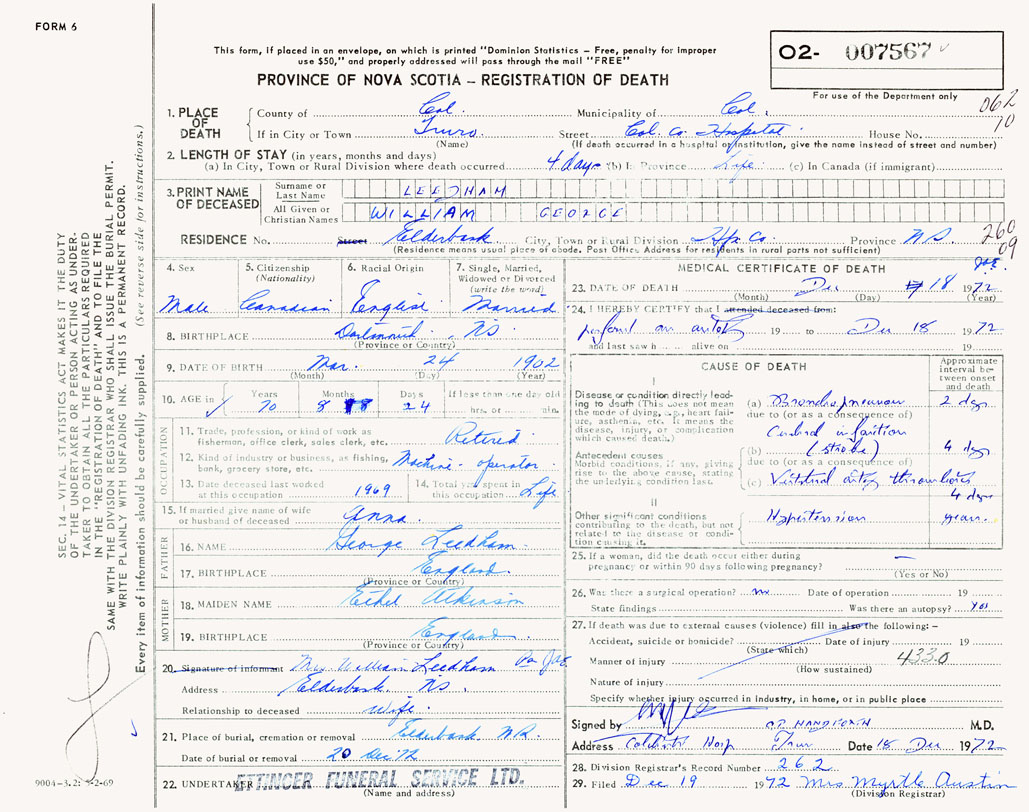 FORM 6
This form, if placed in an envelope, on which is printed "Dominion Statistics – Free, penalty for improper
use $50," and properly addressed will pass through the mail "FREE"
PROVINCE OF NOVA SCOTIA – REGISTRATION OF DEATH
O2- 007567
For use of the Department only
062
10
1. PLACE OF DEATH
County of Col. Municipality of Col.
If in City or Town Truro. Street Col. Co. Hospital. House No.
(Name) (If death occurred in a hospital or institution, give the name instead of street and number)
2. LENGTH OF STAY (in years, months and days)
(a) In City, Town or Rural Division where death occurred 4 days (b) In Province Life (c) In Canada (if immigrant)
3. PRINT NAME OF DECEASED
Surname or Last Name LEEDHAM
All Given or Christian Names WILLIAM GEORGE
RESIDENCE No. Street Elderbank City, Town or Rural Division Hfx Co. Province NS
(Residence means usual place of abode. Post Office Address for residents in rural parts not sufficient)
260
09
4. Sex
Male
5. Citizenship (Nationality)
Canadian
6. Racial Origin
English
7. Single, Married, Widowed or Divorced (write the word)
Married
8. BIRTHPLACE Dartmouth, NS
(Province or Country)
9. DATE OF BIRTH Mar. 24 1902
(Month) (Day) (Year)
10. AGE in Years Months Days If less than one day old
70 8 24 hrs. or min.
OCCUPATION
11. Trade, profession, or kind of work as
fisherman, office clerk, sales clerk, etc. Retired
12. Kind of industry or business, as fishing,
bank, grocery store, etc. Machine-operator
13. Date deceased last worked
at this occupation 1969
14. Total years spent in
this occupation Life
15. If married give name of wife
or husband of deceased Anna.
FATHER
16. NAME George Leedham.
17. BIRTHPLACE England.
(Province or Country)
MOTHER
18. MAIDEN NAME Ethel Atkinson
19. BIRTHPLACE England.
(Province or Country)
20. Signature of informant Mrs William Leedham
Address Elderbank NS.
Relationship to deceased wife.
21. Place of burial, cremation or removal Elderbank
Date of burial or removal 20 Dec 72
22. UNDERTAKER ETTINGER FUNERAL SERVICE LTD.
(Name and address)
MEDICAL CERTIFICATE OF DEATH
23. DATE OF DEATH Dec 18 1972
(Month) (Day) (Year)
24. I HEREBY CERTIFY that I attended deceased from:
19 to Dec 18 1972
and last saw h alive on 19
CAUSE OF DEATH
Approximate interval between onset and death
I
Disease or condition directly leading to death (This does not mean the mode of dying, e.g., heart failure, asthenia, etc. It means the disease, injury, or complication which caused death.)
(a) Bronchopneumonia 2 days
due to (or as a consequence of)
Cerebral infarction
Antecedent causes
Morbid conditions, if any, giving rise to the above cause, stating the underlying condition last.
(b) (stroke) 4 days
due to (or as a consequence of)
(c) Vertebral artery thrombosis
4 days
II
Other significant conditions contributing to the death, but not related to the disease or condition causing it.
Hypertension years.
25. If a woman, did the death occur either during
pregnancy or within 90 days following pregnancy? –
(Yes or No)
26. Was there a surgical operation? no Date of operation 19
State findings Was there an autopsy? yes
27. If death was due to external causes (violence) fill in also the following: –
Accident, suicide or homicide? Date of injury 19
(State which)
Manner of injury 433.0
(How sustained)
Nature of injury
Specify whether injury occurred in industry, in home, or in public place
Signed by M.D.
Address Hosp Date 18 Dec 1972
28. Division Registrar's Record Number 262
29. Filed Dec 19 1972 Mrs Myrtle Austin
(Division Registrar)
SEC. 14 – VITAL STATISTICS ACT MAKES IT THE DUTY
OF THE UNDERTAKER OR PERSON ACTING AS UNDERTAKER TO OBTAIN ALL THE PARTICULARS REQUIRED
IN THE "REGISTRATION OF DEATH" AND TO FILE THE
SAME WITH THE DIVISION REGISTRAR WHO SHALL ISSUE THE BURIAL PERMIT.
WRITE PLAINLY WITH UNFADING INK. THIS IS A PERMANENT RECORD.
Every item of information should be carefully supplied. (See reverse side for instructions.)